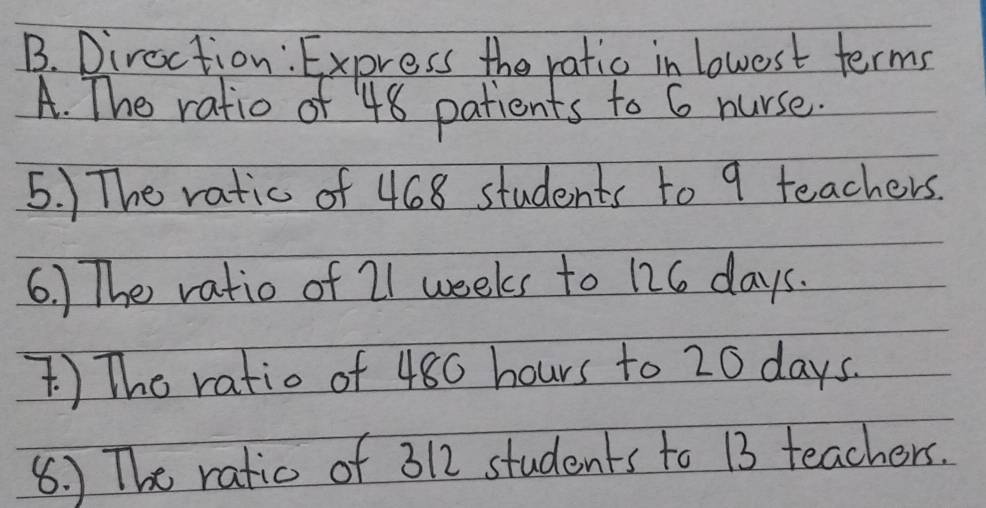 B. Direction: Express the ratio in lowest terms
A. The ratio of 48 patients to 6 nurse.
5.) The ratio of 468 students to 9 teachers.
6.) The ratio of 21 weeks to 126 days.
7.) The ratio of 480 hours to 20 days.
8.) The ratio of 312 students to 13 teachers.